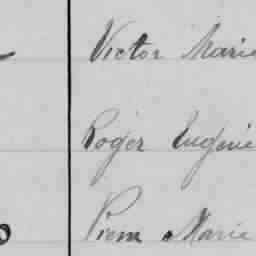 Victor Marie
Roger Eugène
Marie